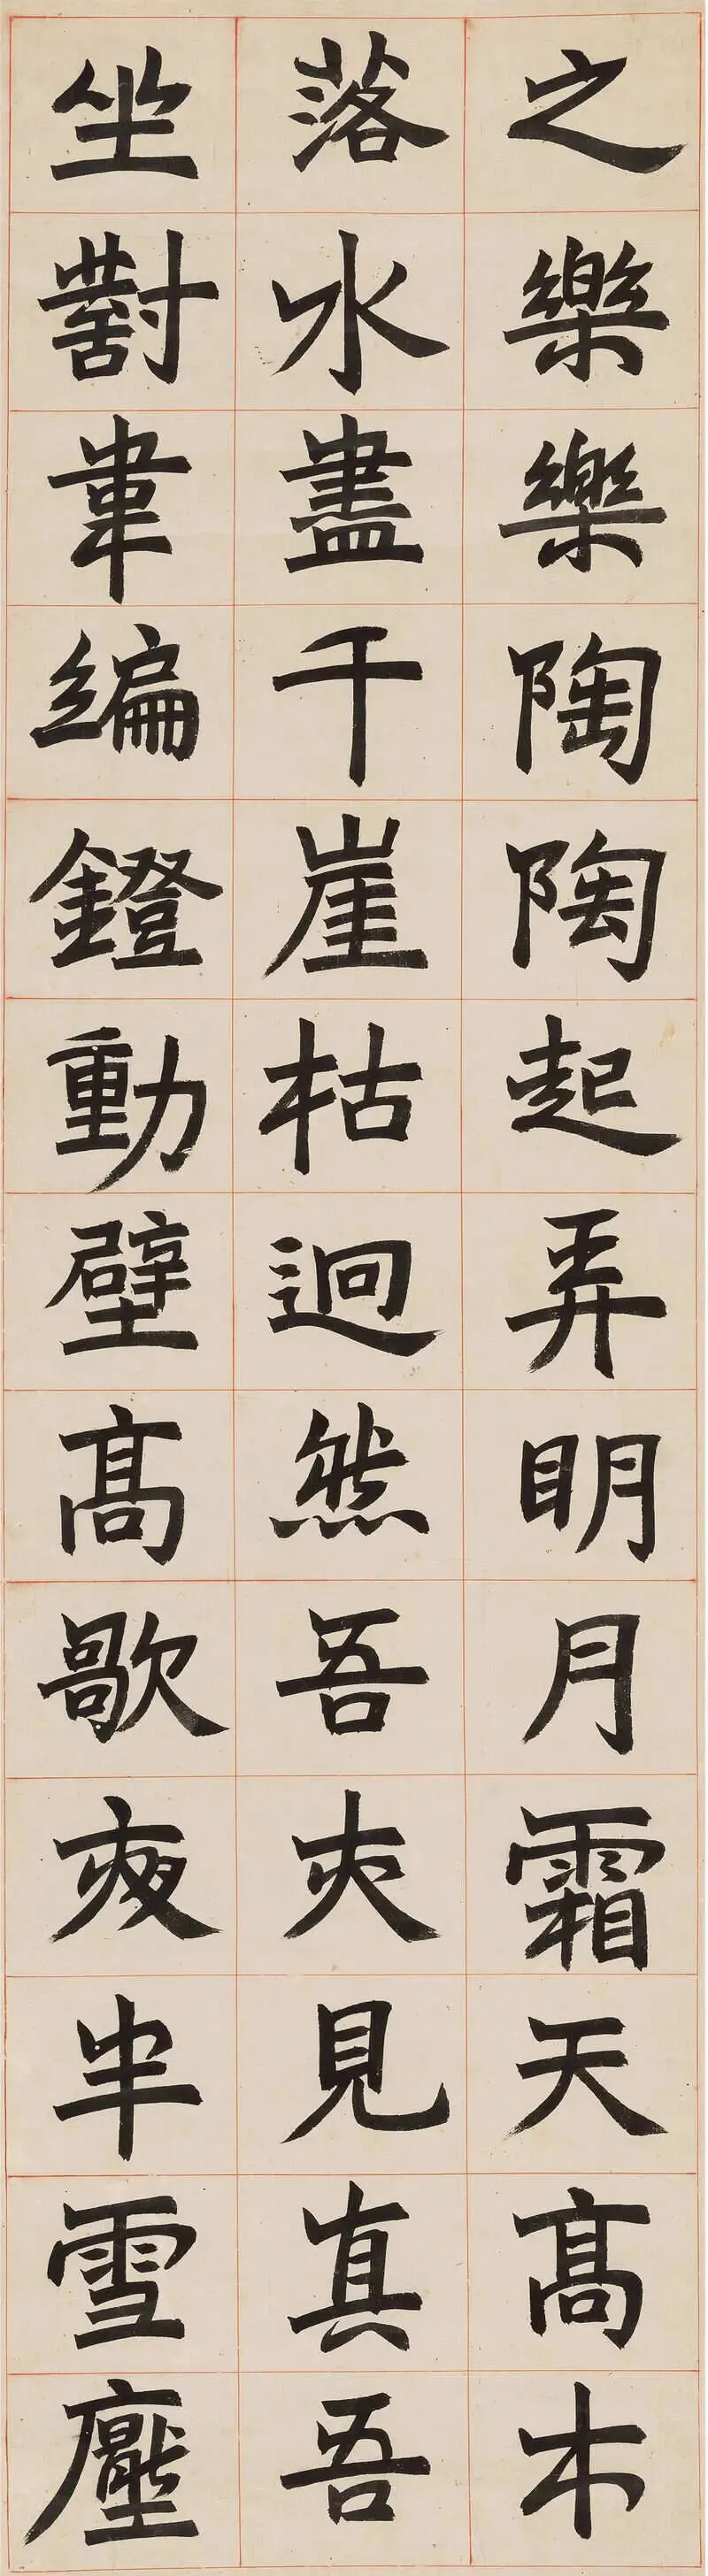 之樂樂陶陶起弄明月霜天高木
落水盡千崖枯迥然吾亦見真吾
坐對韋編鐙動壁高歌夜半雪壓